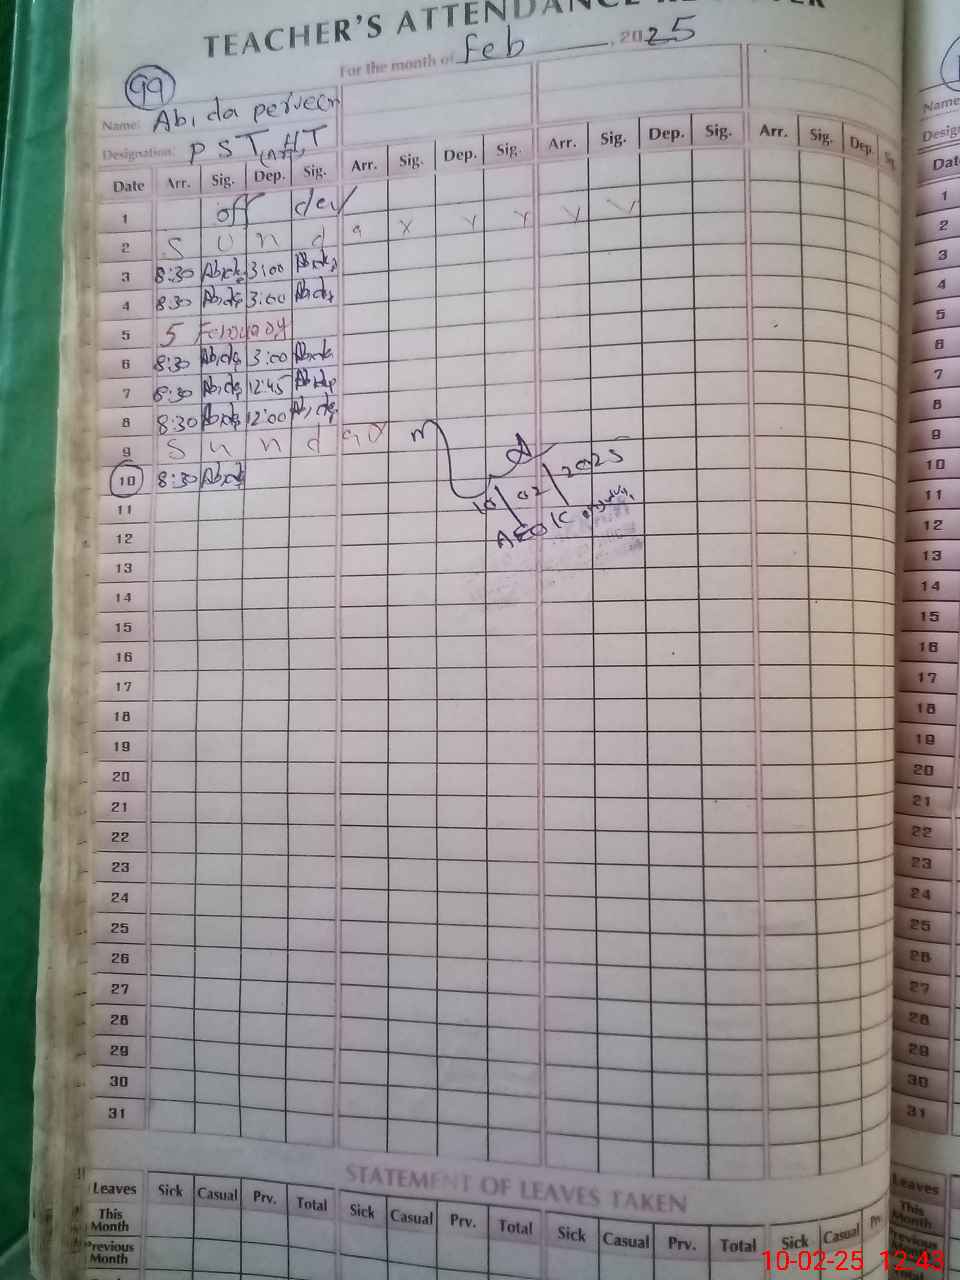 TEACHER'S ATTENDANCE
For the month of Feb, 2025
99
Name: Abida perveen
Designation: P S T
Date Arr. Sig. Dep. Sig. Arr. Sig. Dep. Sig. Arr. Sig. Dep. Sig. Arr. Sig. Dep. Sig.
1 off dey
2 S u n d a y
3 8:30 Abida 3:00 Abida
4 8:30 Abida 3:00 Abida
5 5 February
6 8:30 Abida 3:00 Abida
7 8:30 Abida 12:45 Abida
8 8:30 Abida 12:00 Abida
9 S u n d ay
10 8:30 Abida
10 02 2025
AEO
11
12
13
14
15
16
17
18
19
20
21
22
23
24
25
26
27
28
29
30
31
STATEMENT OF LEAVES TAKEN
Leaves Sick Casual Prv. Total Sick Casual Prv. Total Sick Casual Prv. Total Sick Casual
This Month
Previous Month
Name
Date
1
2
3
4
5
6
7
8
9
10
11
12
13
14
15
16
17
18
19
20
21
22
23
24
25
26
27
28
29
30
31
Leaves
This Month
Previous Month
10-02-25 12:43